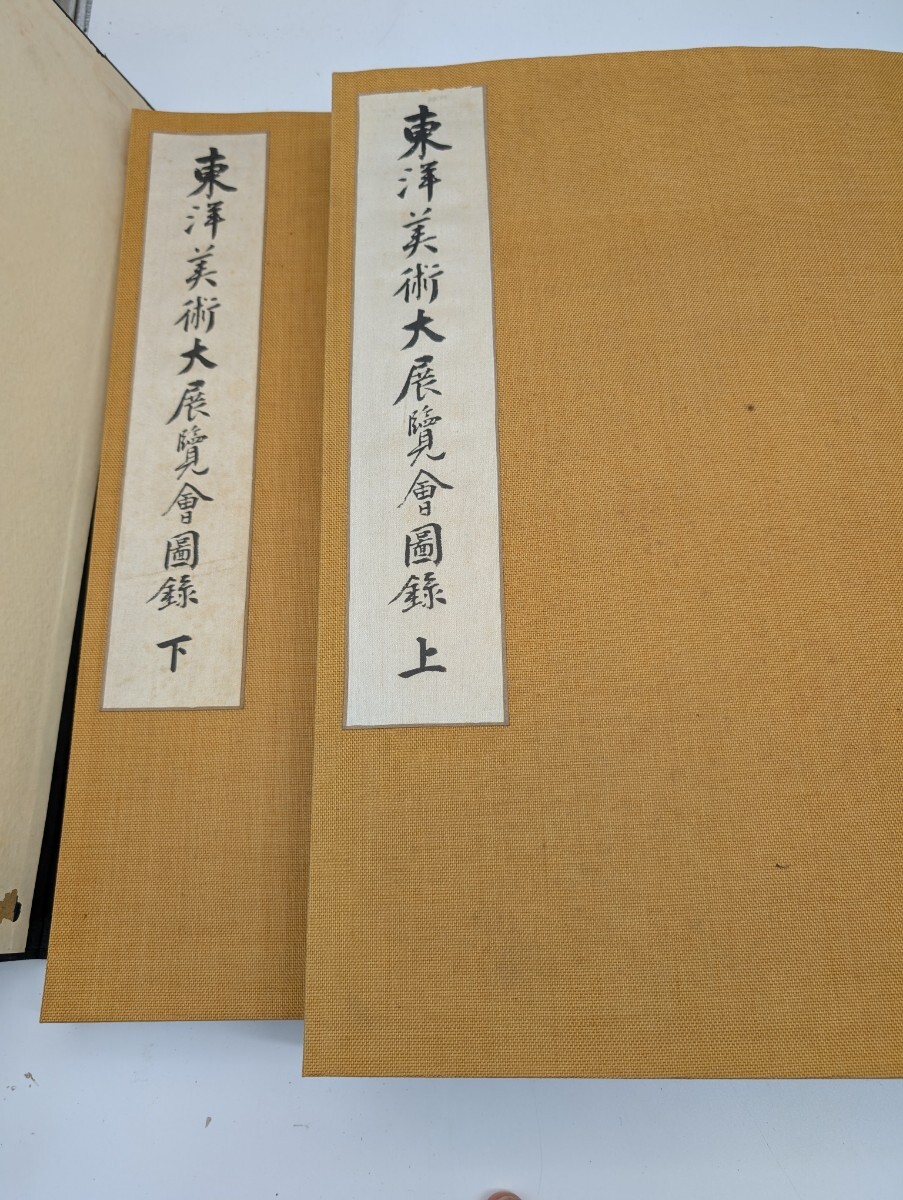 東洋美術大展覽會圖錄 上
東洋美術大展覽會圖錄 下